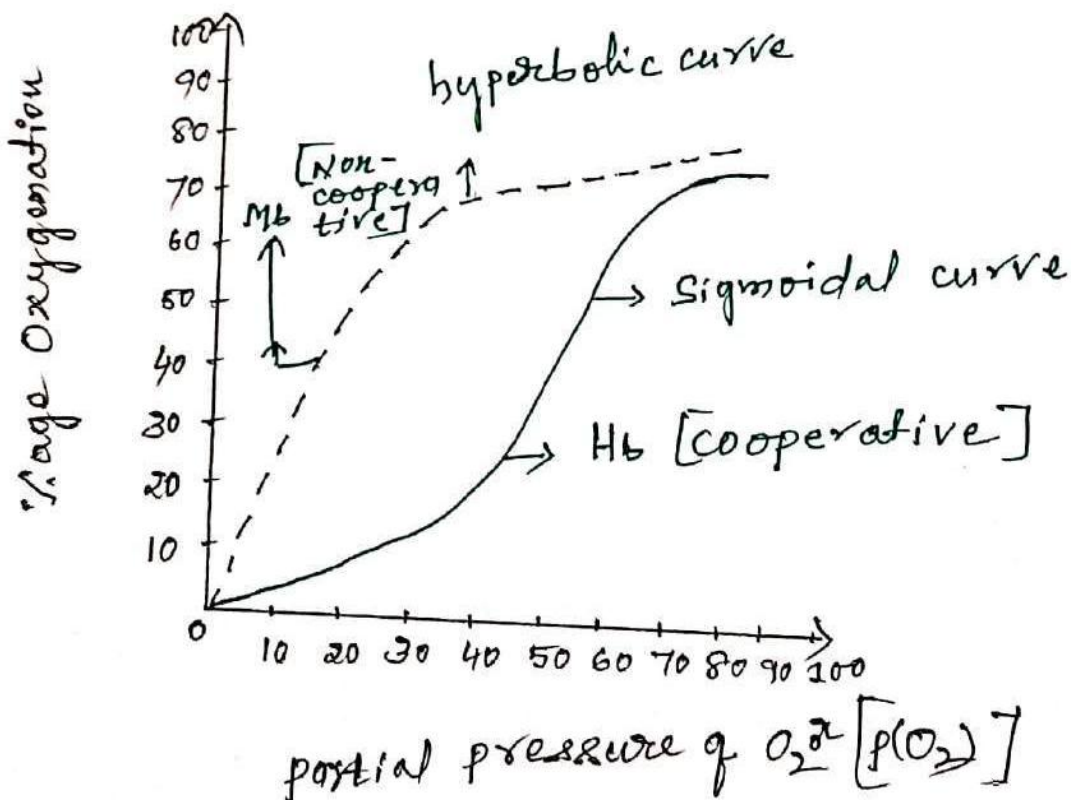 %age Oxygenation
100
90
80
70
60
50
40
30
20
10
0
hyperbolic curve
[Non-
coopera
tive]
Mb
Sigmoidal curve
Hb [cooperative]
10 20 30 40 50 60 70 80 90 100
partial pressure of O2 [p(O2)]